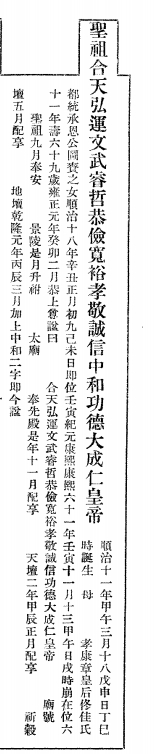 聖祖合天弘運文武睿哲恭儉寬裕孝敬誠信中和功德大成仁皇帝
順治十一年甲午三月十八戊申日丁巳
時誕生　母　孝康章皇后佟佳氏
都統承恩公圖賚之女順治十八年辛丑正月初九己未日即位壬寅紀元康熙康熙六十一年壬寅十一月十三甲午日戌時崩在位六
十一年壽六十九歲雍正元年癸卯二月恭上尊諡曰　合天弘運文武睿哲恭儉寬裕孝敬誠信功德大成仁皇帝　廟號
聖祖九月奉安　景陵是月升祔　太廟　奉先殿是年十一月配享　天壇二年甲辰正月配享　祈穀
壇五月配享　地壇乾隆元年丙辰三月加上中和二字即今諡